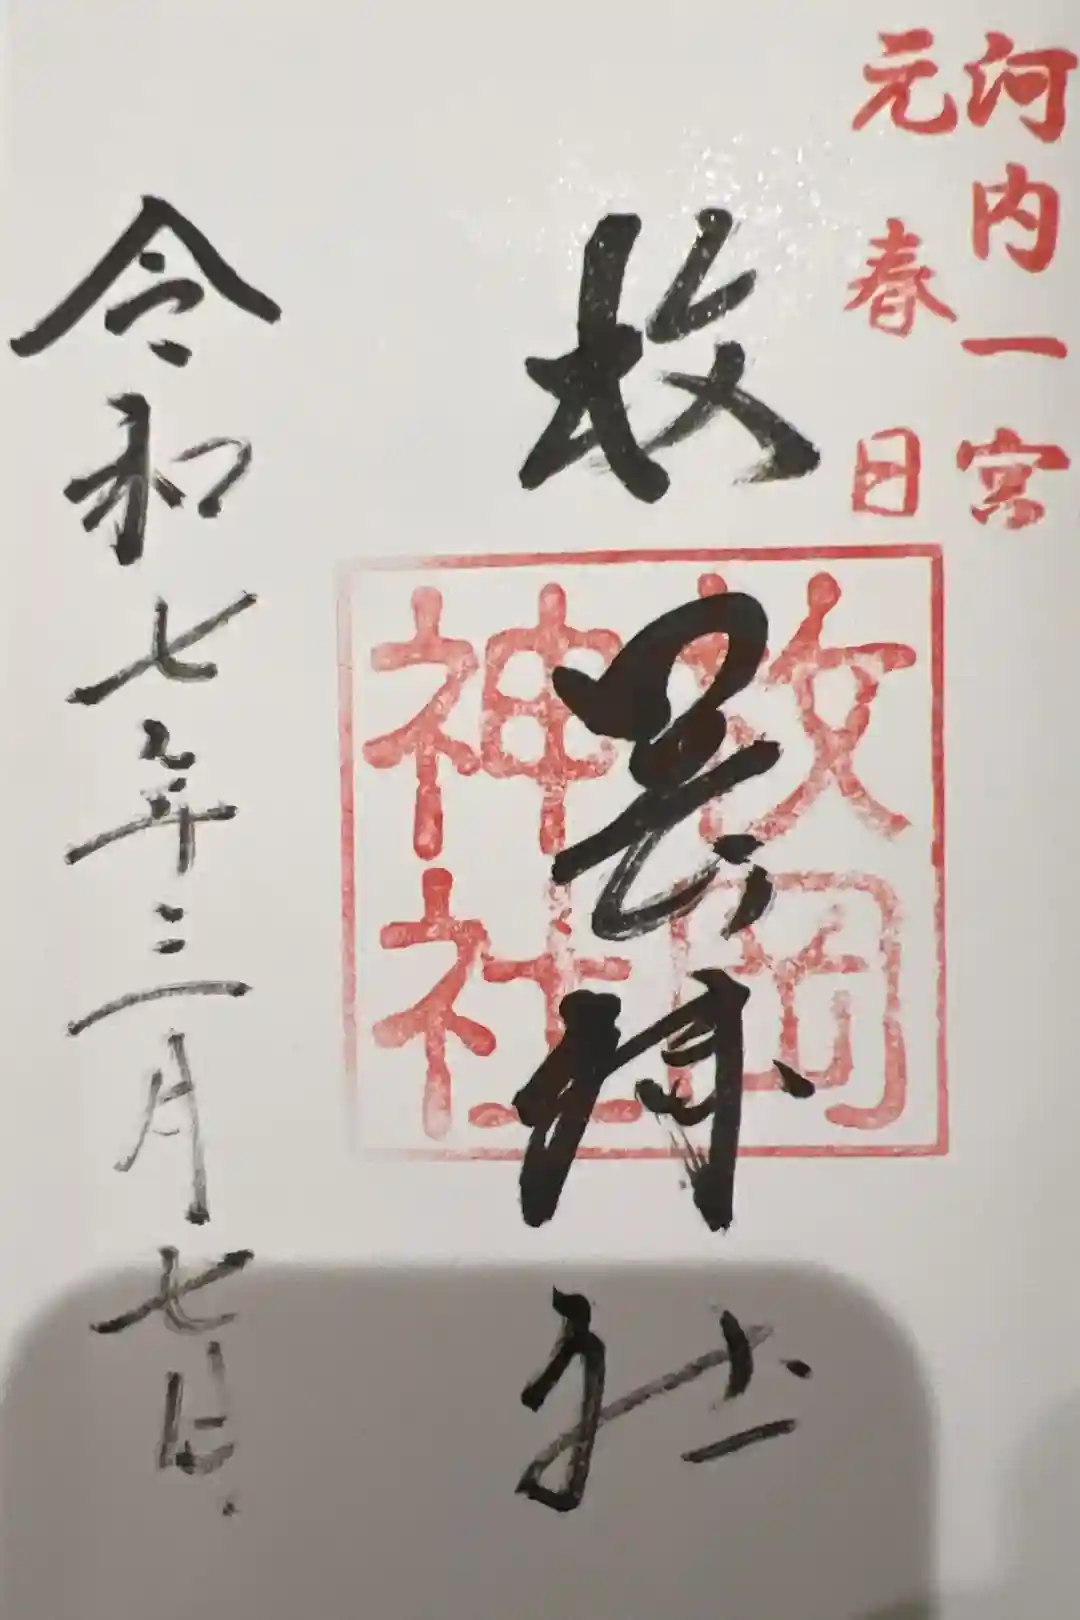 河内一宮
元春日
枚岡神社
枚岡
神社
令和七年三月七日